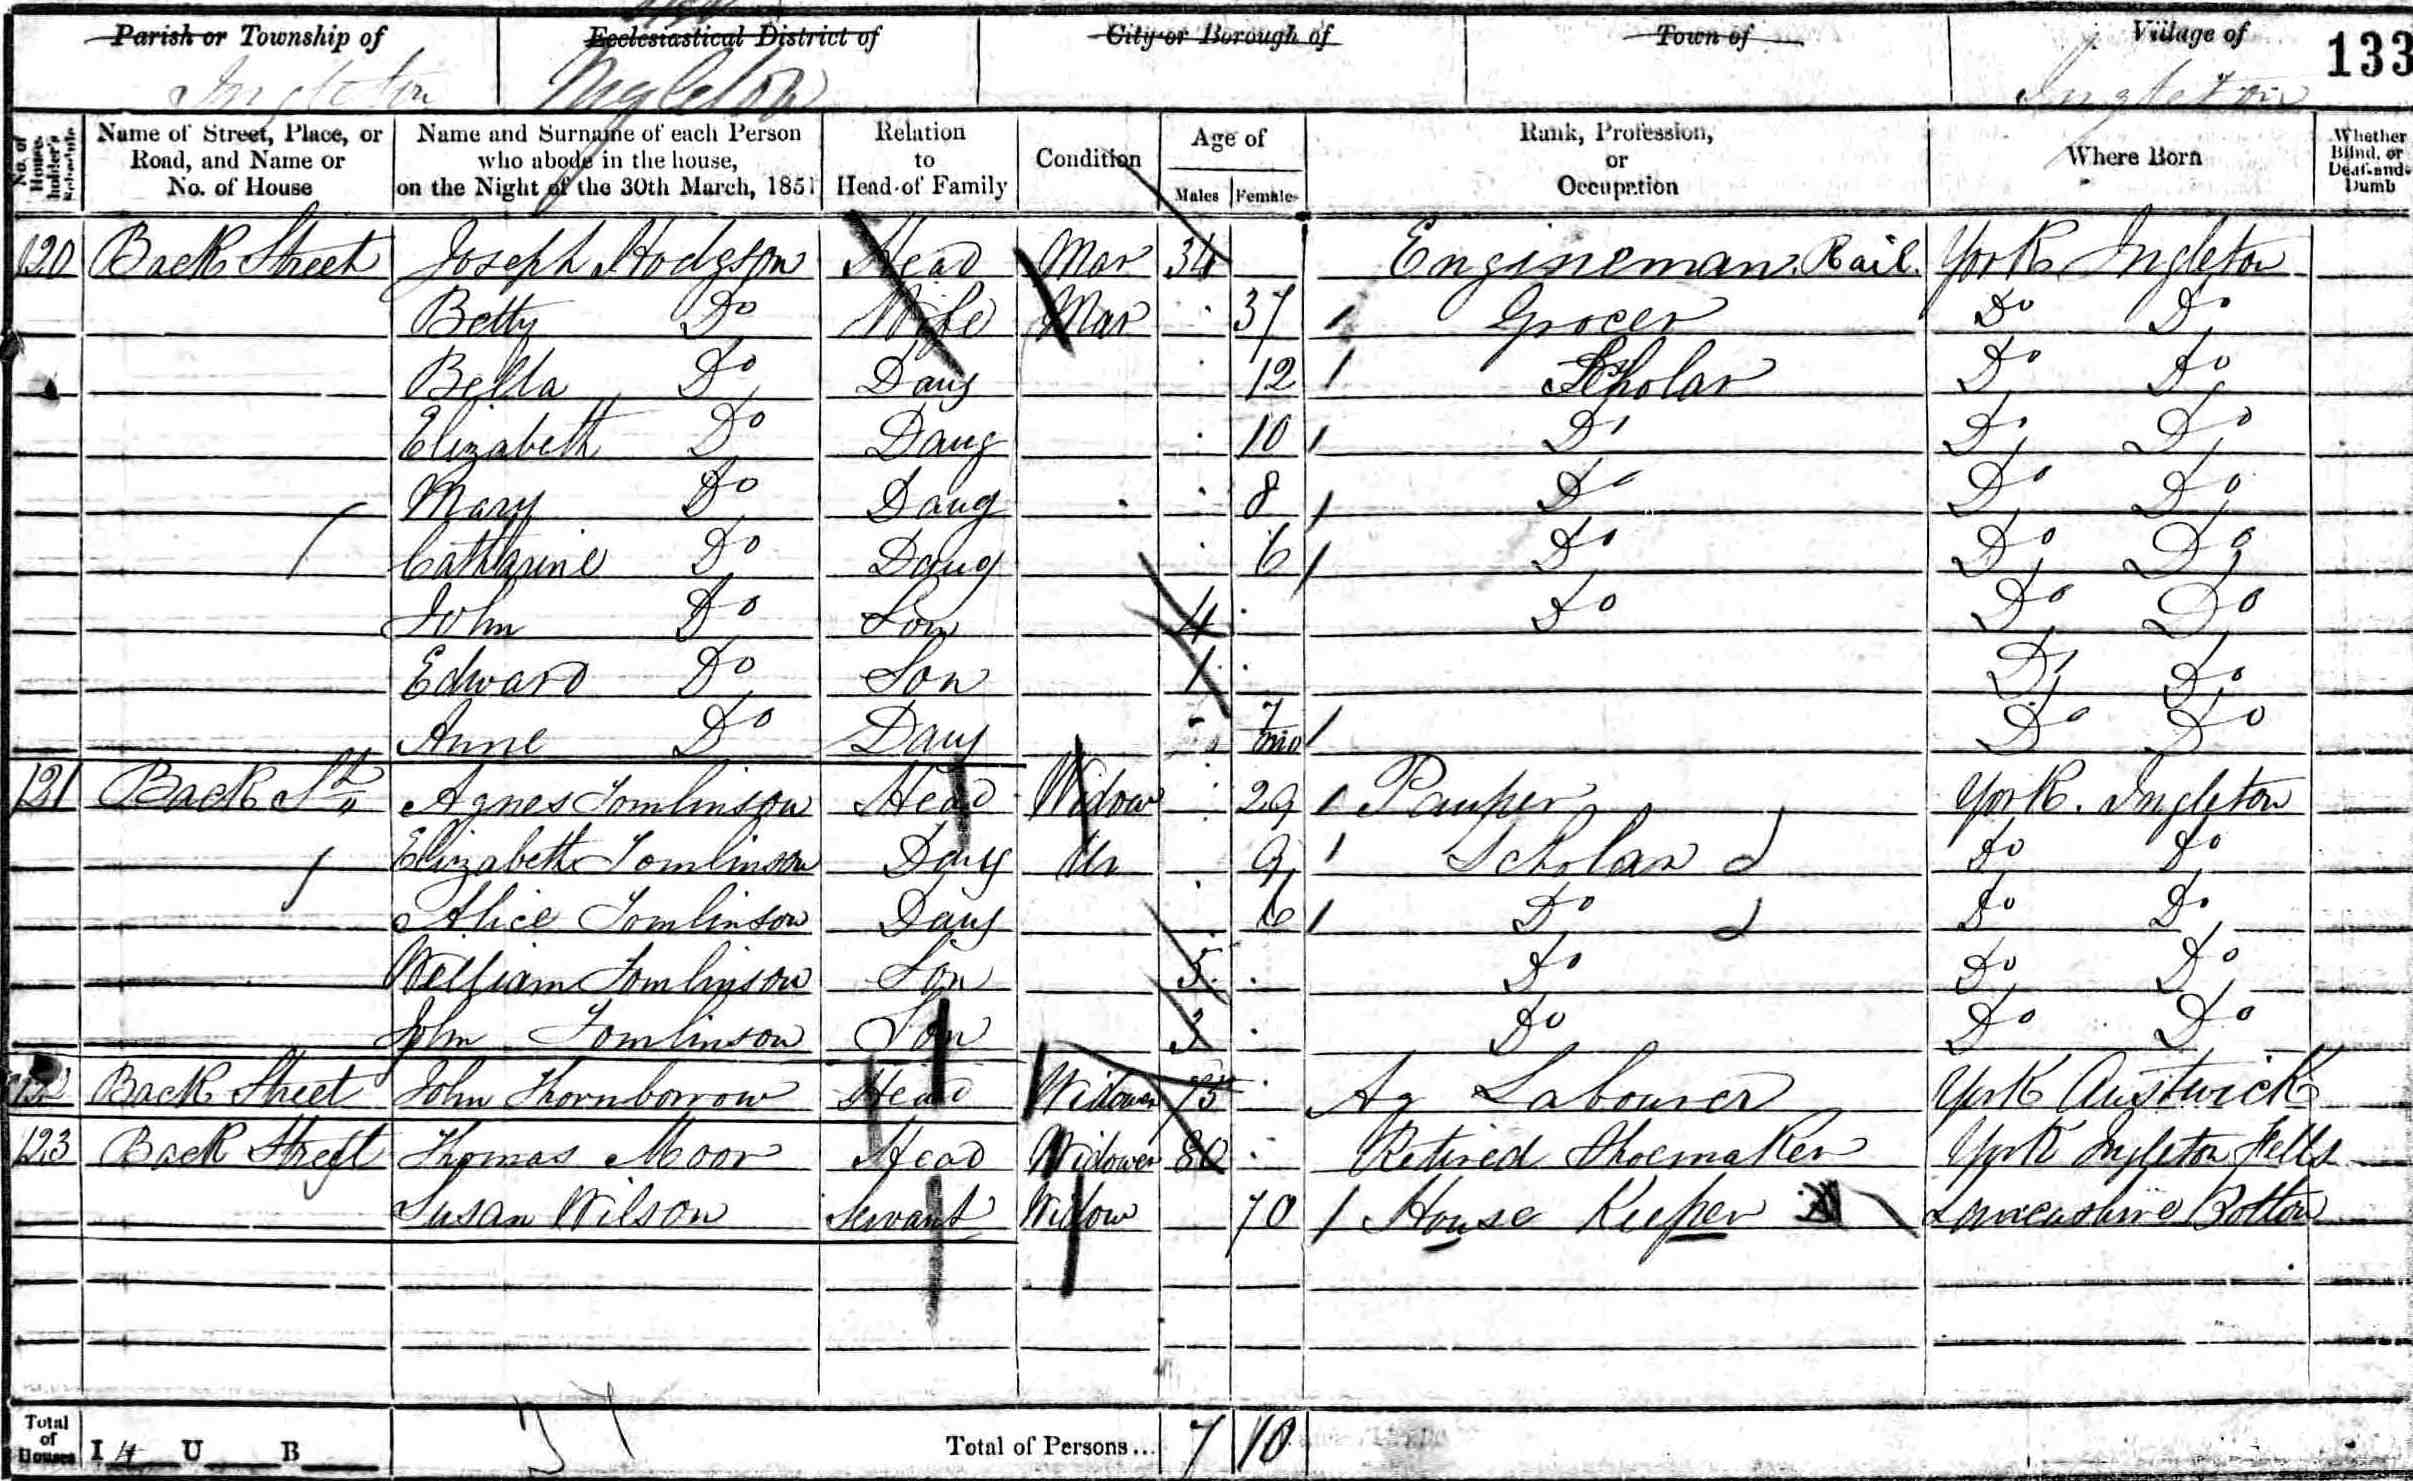 Parish or Township of Ecclesiastical District of City or Borough of Town of Village of 133
Ingleton Ingleton Ingleton
No. of House-holder's Schedule Name of Street, Place, or Road, and Name or No. of House Name and Surname of each Person who abode in the house, on the Night of the 30th March, 1851 Relation to Head of Family Condition Age of Males Females Rank, Profession, or Occupation Where Born Whether Blind, or Deaf-and-Dumb
120 Back Street Joseph Hodgson Head Mar 34 Engineman. Rail. York Ingleton
Betty Do Wife Mar 37 Grocer Do Do
Bella Do Daug 12 Scholar Do Do
Elizabeth Do Daug 10 Do Do Do
Mary Do Daug 8 Do Do Do
Catharine Do Daug 6 Do Do Do
John Do Son 4 Do Do Do
Edward Do Son 1 Do Do
Anne Do Daug 7 mo Do Do
121 Back St Agnes Tomlinson Head Widow 29 Pauper York. Ingleton
Elizabeth Tomlinson Daug Un 9 Scholar Do Do
Alice Tomlinson Daug 6 Do Do Do
William Tomlinson Son 5 Do Do Do
John Tomlinson Son 3 Do Do Do
122 Back Street John Thornborrow Head Widower 75 Ag Labourer York Austwick
123 Back Street Thomas Moor Head Widower 80 Retired Shoemaker York Ingleton Fells
Susan Wilson Servant Widow 70 House Keeper Lancashire Bolton
Total of Houses I 4 U B Total of Persons... 7 10